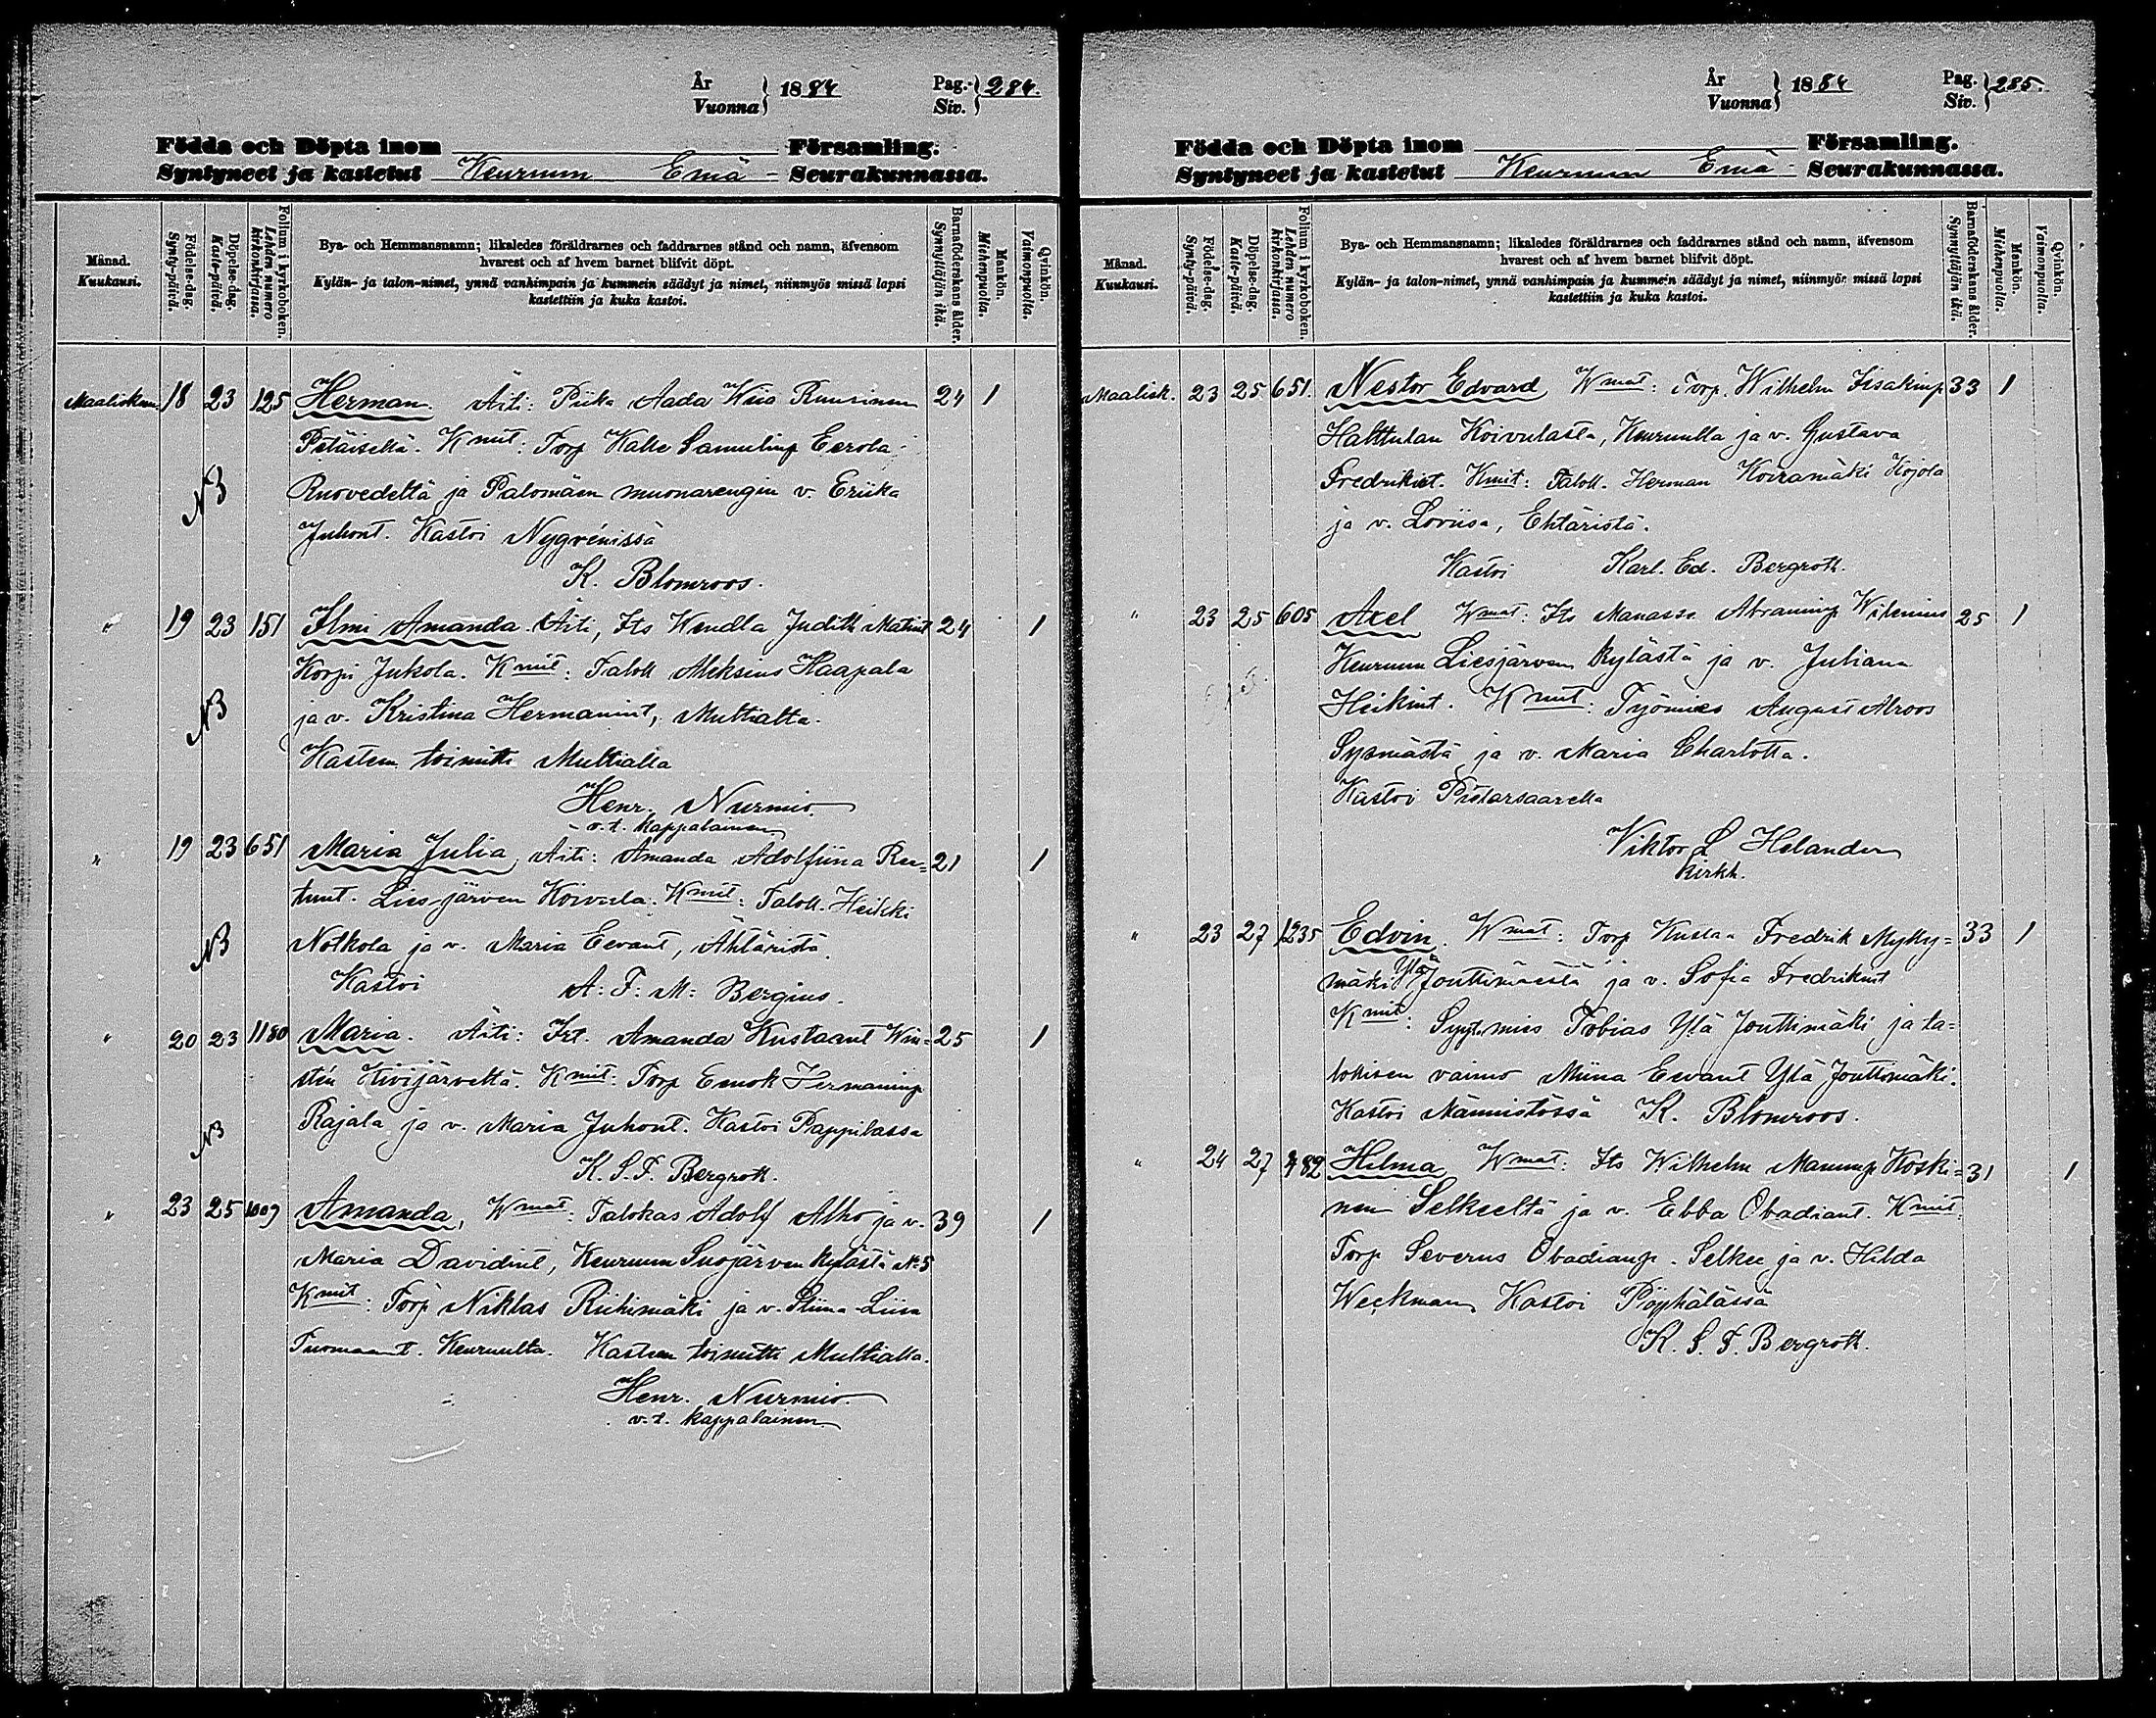 År
Vuonna } 1884
Pag.
Siv. } 284.
Födda och Döpta inom Församling.
Syntyneet ja kastetut Keuruun Emä- Seurakunnassa.
Månad.
Kuukausi.
Födelse-dag.
Synty-päivä.
Döpelse-dag.
Kaste-päivä.
Folium i kyrkoboken.
Lehden numero kirkonkirjassa.
Bya- och Hemmansnamn; likaledes föräldrarnes och faddrarnes stånd och namn, äfvensom
hvarest och af hvem barnet blifvit döpt.
Kylän- ja talon-nimet, ynnä vanhimpain ja kummein säädyt ja nimet, niinmyös missä lapsi
kastettiin ja kuka kastoi.
Barnaföderskans ålder.
Synnyttäjän ikä.
Mankön.
Miehenpuolta.
Qvinkön.
Vaimonpuolta.
Maaliskuu 18 23 125 Herman. Äiti: Piika Aada Wiia Ruusinen 24 1
Petäiseltä. Kmit: Torp Kalle Samulinp Eerola
NB Ruovedeltä ja Palomäen muonarengin v. Eriika
Juhont. Kastoi Nygrénissä
K. Blomroos.
" 19 23 151 Ilmi Amanda. Äiti, Its Wendla Judith Matint 24 1
Korpi Jukola. Kmit: Taloll Aleksius Haapala
NB ja v. Kristina Hermanint, Multialta.
Kasteen toimitti Multialla
Henr. Nurmio.
v.t. kappalainen
" 19 23 651 Maria Julia, Äiti: Amanda Adolfiina Ree= 21 1
tunt. Liesjärven Koivula. Kmit: Taloll. Heikki
NB Notkola ja v. Maria Eevant, Ähtäristä.
Kastoi A: F: M: Bergius.
" 20 23 1180 Maria. Äiti: Irt. Amanda Kustaant Win= 25 1
stén Kivijärveltä. Kmit: Torp Enok Hermaninp
NB Rajala ja v. Maria Juhont. Kastoi Pappilassa
K. S. F. Bergroth.
" 23 25 1009 Amanda, Wmat: Talokas Adolf Alho ja v. 39 1
Maria Davidint, Keuruun Suojärven kylästä N:5
Kmit: Torp Niklas Riihimäki ja v. Stiina Liisa
Tuomaant. Keuruulta. Kasteen toimitti Multialla.
Henr. Nurmio.
v.t. kappalainen
År
Vuonna } 1884
Pag.
Siv. } 285.
Födda och Döpta inom Församling.
Syntyneet ja kastetut Keuruun Emä- Seurakunnassa.
Månad.
Kuukausi.
Födelse-dag.
Synty-päivä.
Döpelse-dag.
Kaste-päivä.
Folium i kyrkoboken.
Lehden numero kirkonkirjassa.
Bya- och Hemmansnamn; likaledes föräldrarnes och faddrarnes stånd och namn, äfvensom
hvarest och af hvem barnet blifvit döpt.
Kylän- ja talon-nimet, ynnä vanhimpain ja kummein säädyt ja nimet, niinmyös missä lapsi
kastettiin ja kuka kastoi.
Barnaföderskans ålder.
Synnyttäjän ikä.
Mankön.
Miehenpuolta.
Qvinkön.
Vaimonpuolta.
Maalisk. 23 25 651. Nestor Edvard Wmat: Torp. Wilhelm Iisakinp 33 1
Halttulan Koivulasta, Keuruulla ja v. Gustava
Fredrikint. Kmit: Taloll. Herman Koiramäki Kojola
ja v. Loviisa, Ehtäristä.
Kastoi Karl. Ed. Bergroth.
" 23 25 605 Axel Wmat: Its Manasse Abraminp Wilenius 25 1
Keuruun Liesjärven kylästä ja v. Juliana
Heikint. Kmit: Työmies August Alroos
Sysmästä ja v. Maria Charlotta.
Kastoi Pietarsaarella
Viktor L Helander
kirkh.
" 23 27 1235 Edvin. Wmat: Torp Kustaa Fredrik Mylly= 33 1
mäki Ylä Jouttimäestä ja v. Sofia Fredrikint
Kmit: Syyt.mies Tobias Ylä Jouttimäki ja ta=
lokisen vaimo Miina Eevant Ylä Jouttimäki.
Kastoi Männistössä K. Blomroos.
" 24 27 782 Hilma Wmat: Its Wilhelm Manuinp Koski= 31 1
nen Selkeeltä ja v. Ebba Obadiant. Kmit:
Torp Severus Obadianp. Selkee ja v. Hilda
Weckman Kastoi Pöyhälässä
K. S. F. Bergroth.